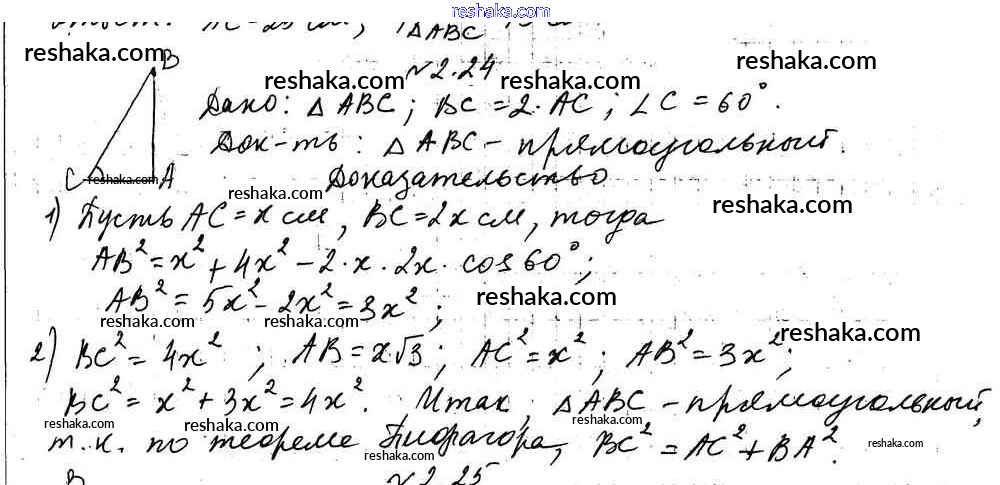 www.reshaka.com
Ответ: AC = 25 см, △ABC
reshaka.com B №2.24 reshaka.com
reshaka.com reshaka.com
Дано: △ABC; BC = 2·AC; ∠C = 60°.
Док-ть: △ABC – прямоугольный.
C reshaka.com A Доказательство
reshaka.com reshaka.com
1) Пусть AC = x см, BC = 2x см, тогда
AB² = x² + 4x² – 2·x·2x·cos60°;
AB² = 5x² – 2x² = 3x²; reshaka.com
reshaka.com reshaka.com reshaka.com
2) BC² = 4x²; AB = x√3; AC² = x²; AB² = 3x²;
BC² = x² + 3x² = 4x². Итак, △ABC – прямоугольный,
reshaka.com reshaka.com
т.к. по теореме Пифагора, BC² = AC² + BA². reshaka.com
reshaka.com
B №2.25